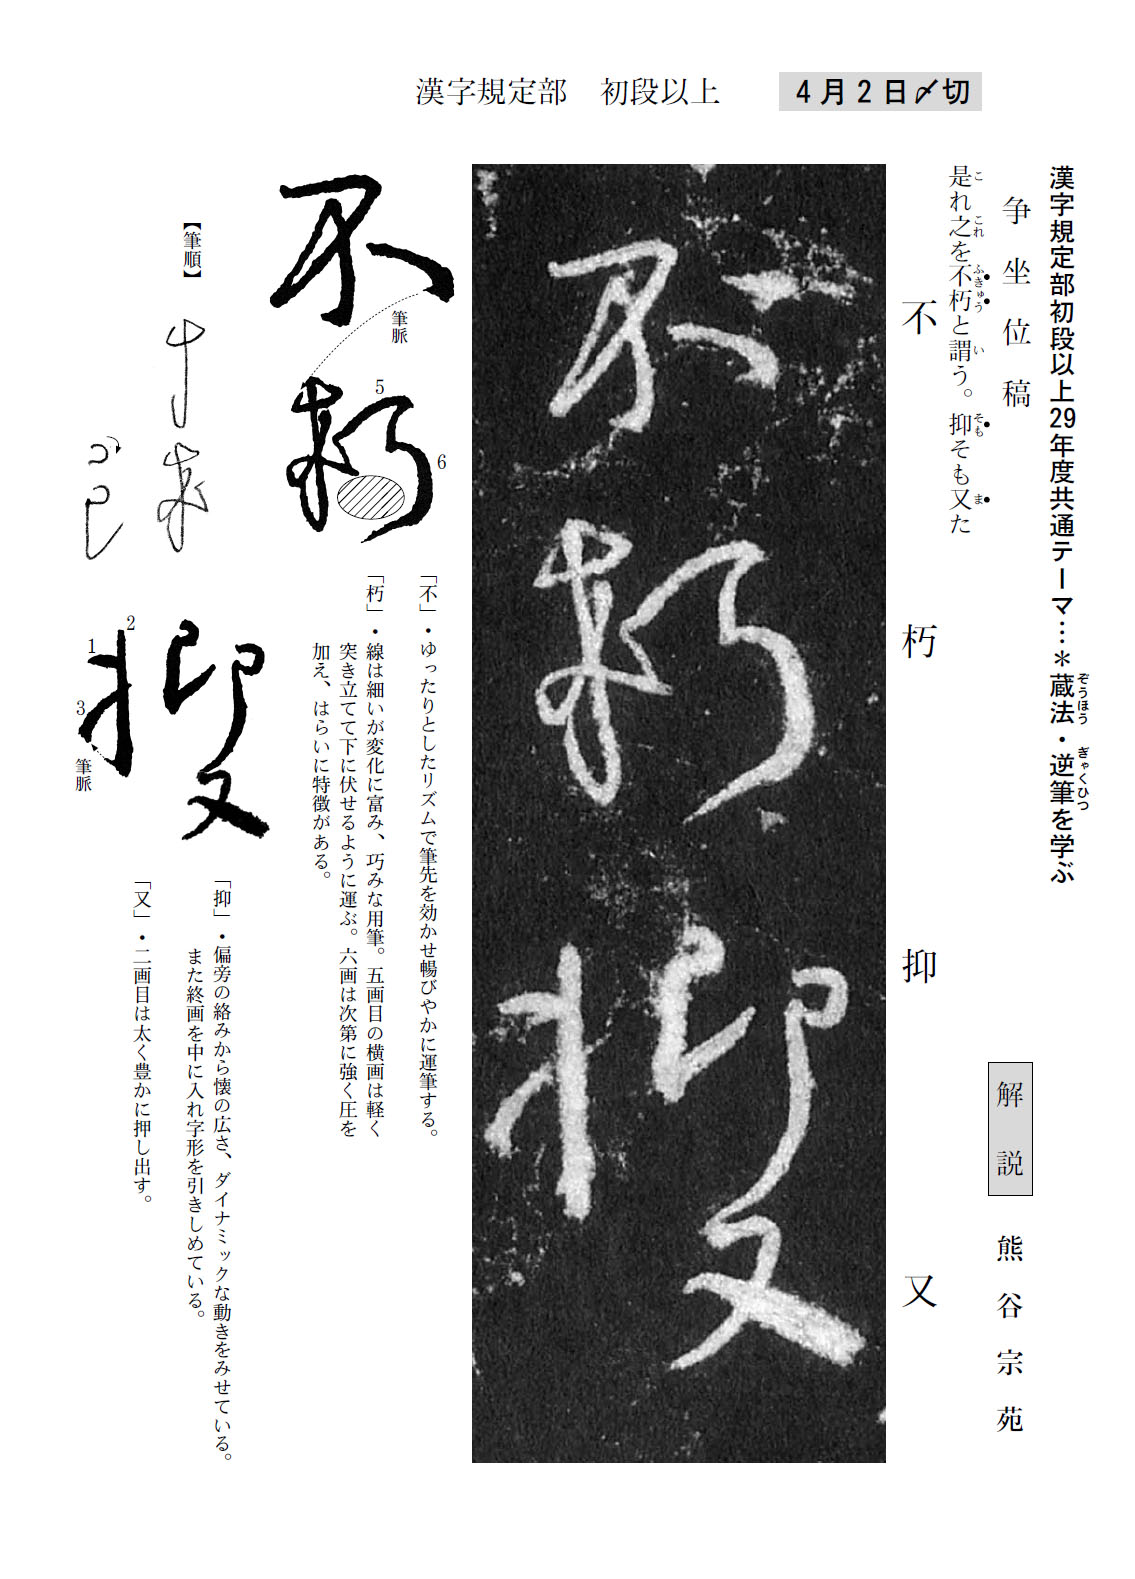 漢字規定部　初段以上
4月2日〆切
漢字規定部初段以上29年度共通テーマ…＊蔵法・逆筆を学ぶ
ぞうほう
ぎゃくひつ
争坐位稿
是れ之を不朽と謂う。抑そも又た
こ
これ
ふきゅう
い
そも
ま
解説
熊谷宗苑
不朽抑又
不朽抑又
不朽
筆脈
5
6
【筆順】
抑又
1
2
3
筆脈
「不」・ゆったりとしたリズムで筆先を効かせ暢びやかに運筆する。
「朽」・線は細いが変化に富み、巧みな用筆。五画目の横画は軽く
突き立てて下に伏せるように運ぶ。六画は次第に強く圧を
加え、はらいに特徴がある。
「抑」・偏旁の絡みから懐の広さ、ダイナミックな動きをみせている。
また終画を中に入れ字形を引きしめている。
「又」・二画目は太く豊かに押し出す。